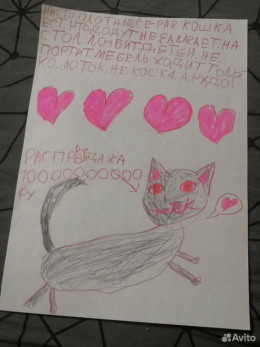 ЧИСТОПЛОТНАЯ СЕРАЯ КОШКА.
ЕСТ ЧТО ДАДУТ НЕ ЗАЛАЗЕЕТ НА
СТОЛ ЛОЧВИТ ДЕТЕЙ. НЕ
ПОРТИТ МЕБЕЛЬ ХОДИТ ТОЛЬ
КО ЛОТОК. НЕ КОШКА. А. ЧУДО!
РАСПРОДАЖА
10000000000
РУ
Avito